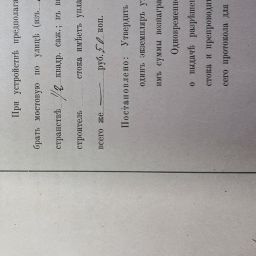 При устройствѣ предполаг
брать мостовую по улицѣ (изъ
странствѣ 1/2 квадр. саж., въ
строитель стока имѣетъ упла
всего же — руб. 50 коп.
Постановлено: Утвердить
одинъ экземпляръ у
имъ суммы вознагра
Одновременно
о выдачѣ разрѣшен
стока и препроводи
сего протокола для